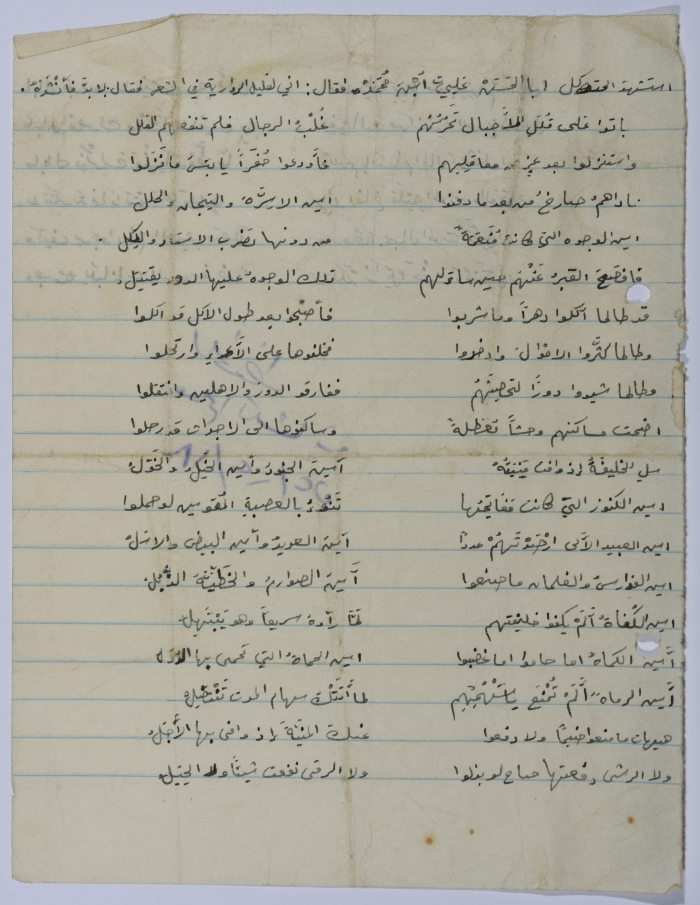 استنشد المتوكل ابا الحسن علي بن محمد فقال: اني لقليل الرواية في الشعر فقال لا بد فأنشده.
باتوا على قُلَلِ الأجبال تَحْرُسُهم غُلْبُ الرجال فلم تنفعهم القلل
واستنزلوا بعد عز من معاقلهم فأودعوا حُفَراً يا بئس ما نزلوا
ناداهمُ صارخٌ من بعد ما دفنوا اين الاسِرَّة والتيجان والحلل
اين الوجوه التي كانت مُنَعَّمَةً من دونها تضرب الاستار والكلل.
فافصَحَ القبرُ عَنْهم حين ساءلهم تلك الوجوهُ عليها الدود يقتتل.
قد طالما أكلوا دهراً وما شربوا فأصبحوا بعد طول الاكل قد اكلوا
وطالما كثَّروا الاموالَ وادخروا فخلفوها على الأعداء وارتحلوا
وطالما شيدوا دورًا لتحصِنَهُم ففارقو الدورَ والاهلين وانتقلوا
اضحت مساكنهم وحشاً معطلةً وساكنوها الى الاجداث قد رحلوا
سل الخليفةُ إذ وافت مَنِيَتُهُ أين الجنودُ وأين الخيلُ والخَوَلُ
اين الكنوز التي كانت مفاتحُها تَنُوءُ بالعصبةِ المُقوين لو حملوا
اين العبيد الألى ارْصَدْتَهُمْ عددا أين الحديدُ وأين البيض والاسلُ
اين الفوارسُ والغلمان ما صنعوا أَين الصوارمُ والخَطِّيَّةُ الذُّبُلُ.
اين الكُفاةُ أَلَمْ يكفوا خليفتهم لمّا رأوهُ سريعاً وهو يَبْتَهِلُ
أَين الكماةُ اما حاموا اما غضبوا اين الحماةُ التي تحمى بها الدول
أَين الرماةُ أَلَمْ تُمْنَع بأَسْهُمِهِم لما أتَتْكَ سهام الموت تَنْتَصِلُ
هيهات ما منعوا ضيماً ولا دفعوا عنك المنيّةَ إذ وافى بها الأَجَلُ
ولا الرشى دفعتها صاح لو بذلوا ولا الرقى نفعت شيئاً ولا الحِيَلُ